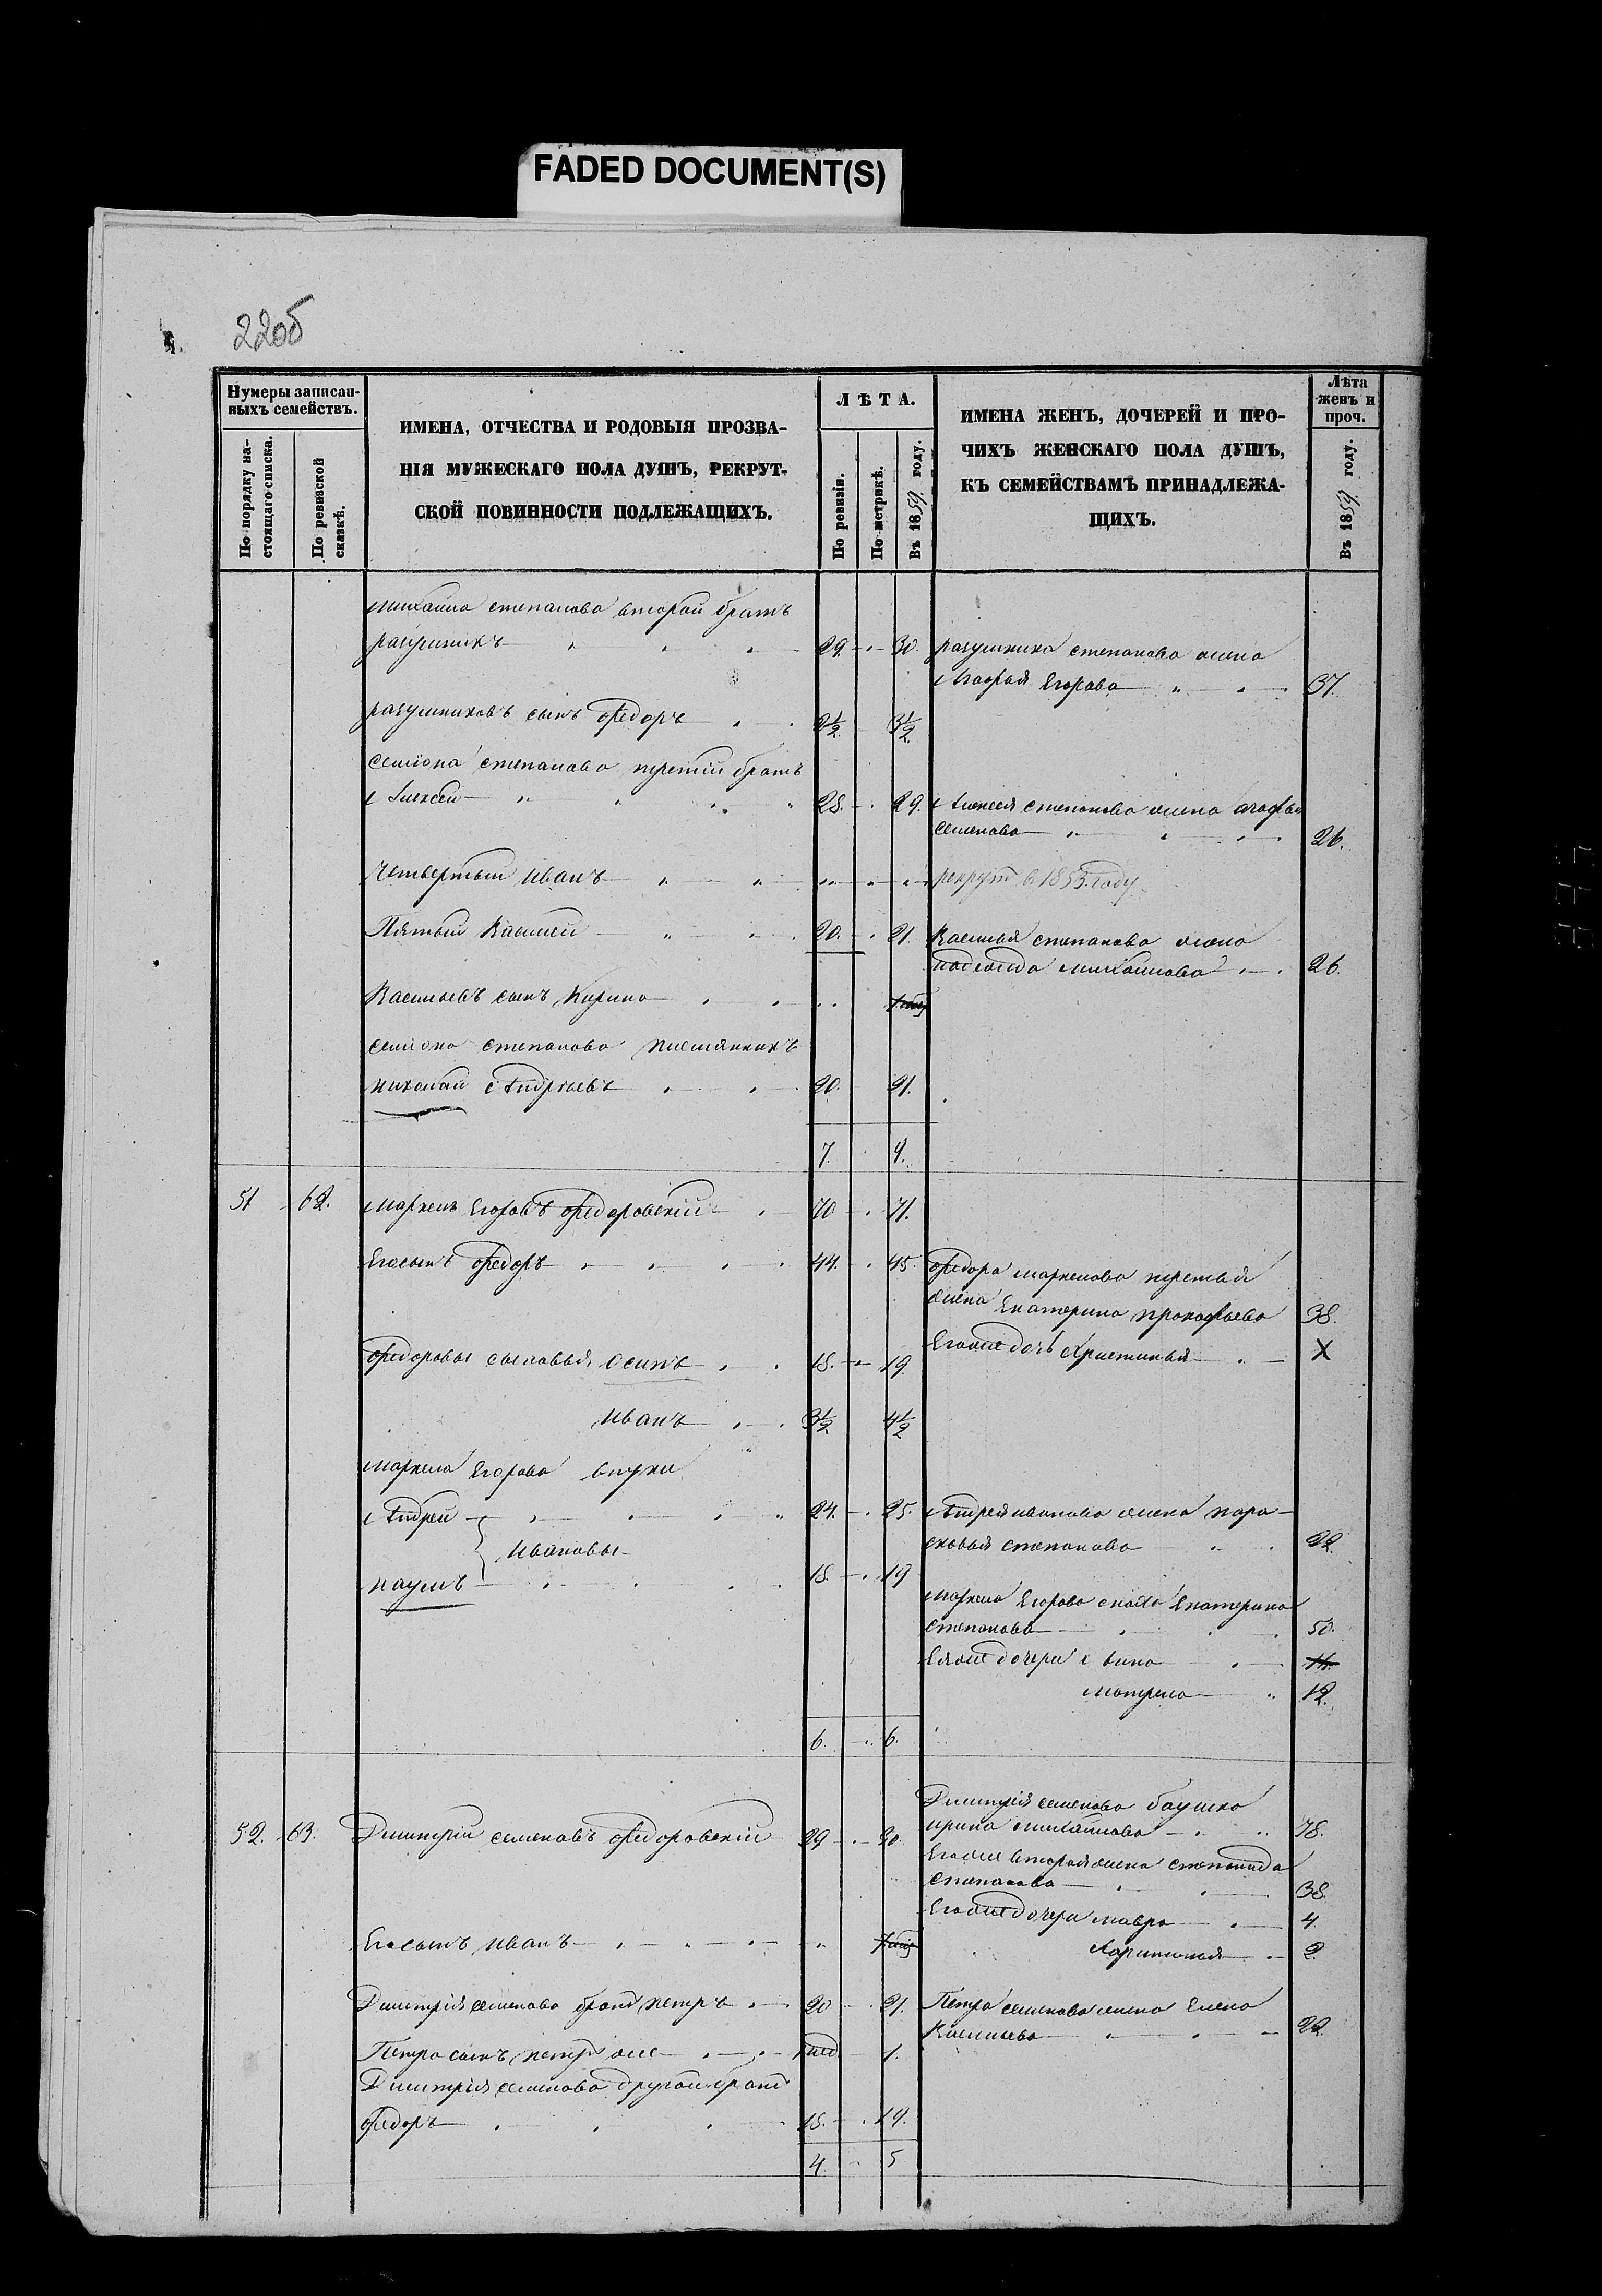 FADED DOCUMENT(S)
22об
Нумеры записан-
ныхъ семействъ.
По порядку на-
стоящаго списка.
По ревизской
сказкѣ.
ИМЕНА, ОТЧЕСТВА И РОДОВЫЯ ПРОЗВА-
НІЯ МУЖЕСКАГО ПОЛА ДУШЪ, РЕКРУТ-
СКОЙ ПОВИННОСТИ ПОДЛЕЖАЩИХЪ.
ЛѢТА.
По ревизіи.
По метрикѣ.
Въ 1859 году.
ИМЕНА ЖЕНЪ, ДОЧЕРЕЙ И ПРО-
ЧИХЪ ЖЕНСКАГО ПОЛА ДУШЪ,
КЪ СЕМЕЙСТВАМЪ ПРИНАДЛЕЖА-
ЩИХЪ.
Лѣта
женъ и
проч.
Въ 1859 году.
Михайла степанова второй братъ
29. 30. степанова жена
Егорова 37.
сынъ Федоръ 2½ 3½
семіона степанова третій братъ
Алексей 28. 29. Алексея степанова жена агафья
семенова 26.
Четвертый Иванъ рекрут в 1853 году
Пятый Василей 20. 21. Василья степанова жена
надежда михайлова 26.
Васильевъ сынъ Кирила
семиона степанова племянникъ
николай Андреевъ 20. 21.
7. 4.
51 62. маркелъ Егоровъ Федоровскій 70 71.
Его сынъ Федоръ 44. 45. Федора маркелова третья
жена Екатерина прокофьева 38.
Федоровы сыновья Осипъ 18. 19. Его же дочь Христинья X
Иванъ 3½ 4½
маркела Егорова внуки
Андрей 24. 25. Андрея иванова жена пара-
Ивановы сковья степанова 22.
наумъ 18. 19
маркела Егорова сноха Екатерина
степанова 50.
Ея же дочери анна
матрена 12.
6. 6.
52. 63. Дмитрій семеновъ Федоровскій 29 30. Дмитрія семенова баушка
ирина михайлова 78.
Его же вторая жена степанида
степанова 38.
Его же дочери мавра 4.
Его сынъ Иванъ Харитонья 2.
Дмитрія семенова братъ петръ 20 21. Петра семенова жена Елена
Васильева 22.
Петра сынъ петръ же 1.
Дмитрія семенова другой братъ
Федоръ 18. 19.
4. 5